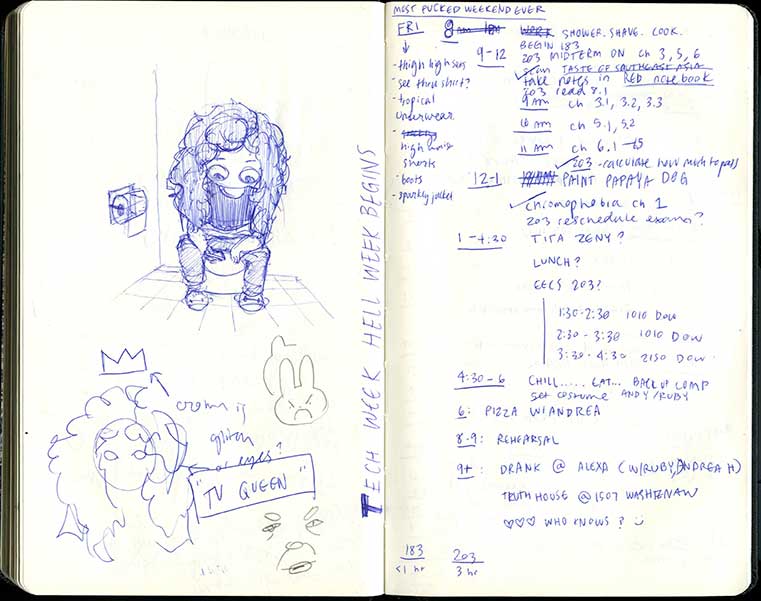 crown is
glitch
or eyes?
"TV QUEEN"
TECH WEEK HELL WEEK BEGINS
MOST FUCKED WEEKEND EVER
FRI
- thigh high sox
- see thru shirt?
- tropical
underwear
- high waist
shorts
- boots
- sparkly jacket
8 am WORK SHOWER. SHAVE. COOK.
BEGIN 183
9-12 203 MIDTERM ON ch 3, 5, 6
TASTE OF SOUTHEAST ASIA
take notes in RED notebook
203 read 8.1
9 am ch 3.1, 3.2, 3.3
10 am ch 5.1, 5.2
11 am ch 6.1
203 - calculate how much to pass
12-1 PAINT PAPAYA DOG
chromophobia ch 1
203 reschedule exams?
1-4:30 TITA ZENY?
LUNCH?
EECS 203?
1:30-2:30 1010 DOW
2:30 - 3:30 1010 DOW
3:30 - 4:30 2150 DOW
4:30-6 CHILL..... EAT... BACK UP COMP
set costume ANDY/RUBY
6: PIZZA W/ANDREA
8-9: REHEARSAL
9+: DRANK @ ALEXA (W/RUBY, ANDREA H)
TRUTH HOUSE @ 1507 WASHTENAW
♡♡♡ WHO KNOWS?
183 203
<1 hr 3 hr